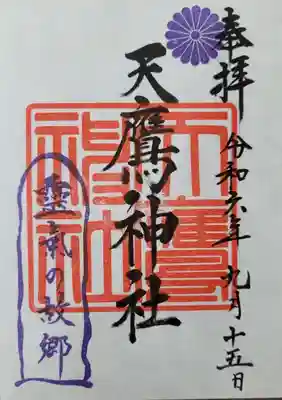 奉拝
令和六年九月十五日
天鷹神社
天鷹神社
靈氣の故郷